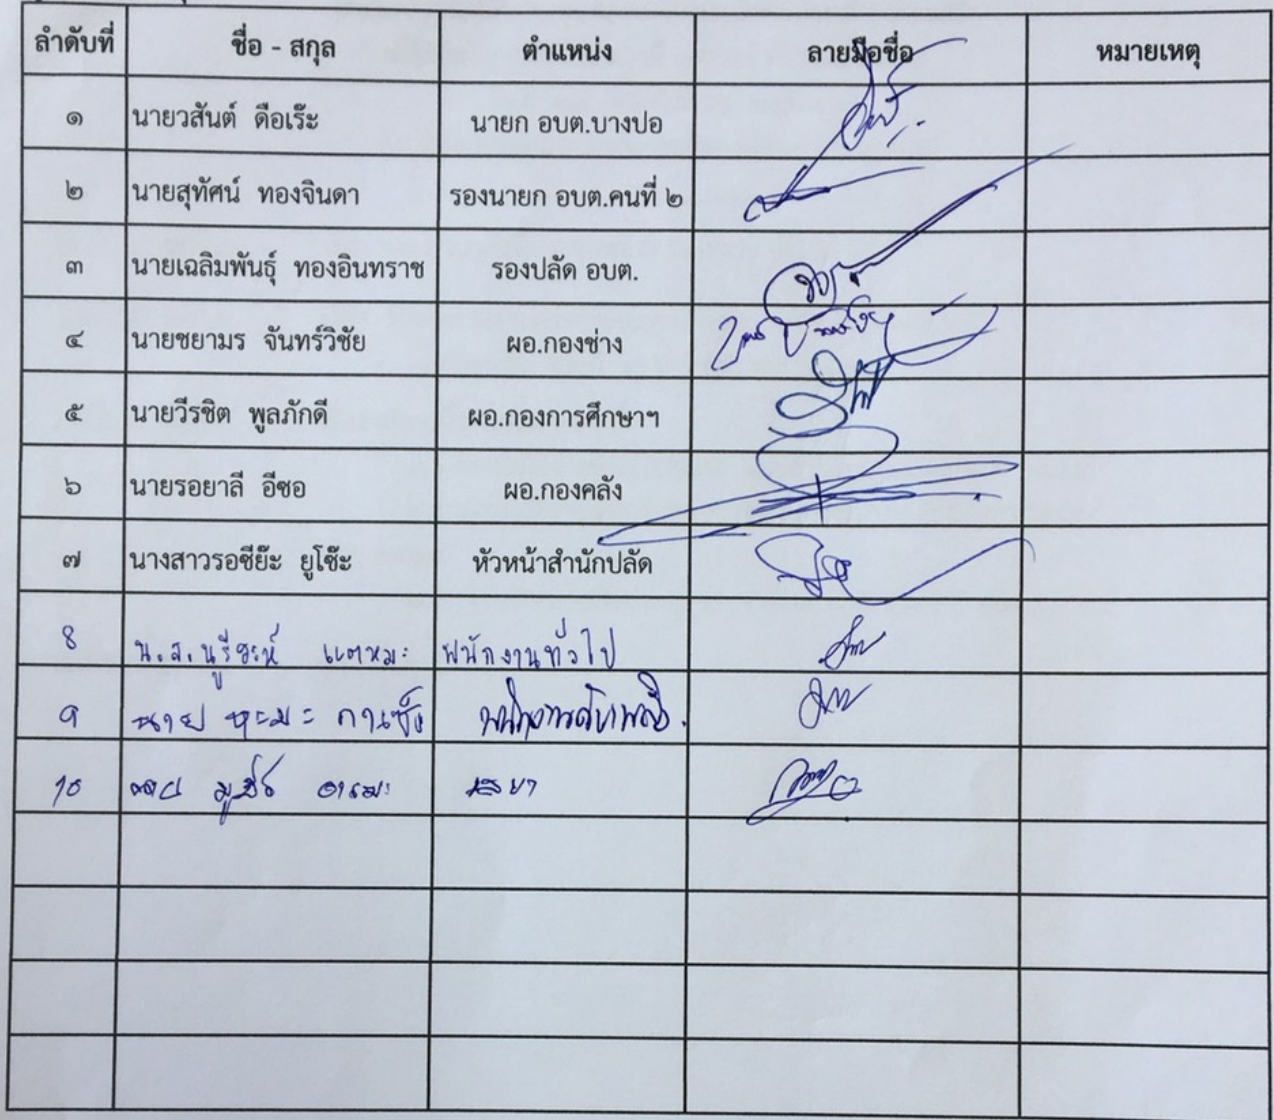 ลำดับที่ ชื่อ - สกุล ตำแหน่ง ลายมือชื่อ หมายเหตุ
๑ นายวสันต์ ดือเร๊ะ นายก อบต.บางปอ
๒ นายสุทัศน์ ทองจินดา รองนายก อบต.คนที่ ๒
๓ นายเฉลิมพันธุ์ ทองอินทราช รองปลัด อบต.
๔ นายชยามร จันทร์วิชัย ผอ.กองช่าง
๕ นายวีรชิต พูลภักดี ผอ.กองการศึกษาฯ
๖ นายรอยาลี อีซอ ผอ.กองคลัง
๗ นางสาวรอซีย๊ะ ยูโซ๊ะ หัวหน้าสำนักปลัด
8 น.ส. แตหมะ พนักงานทั่วไป
9 นาย
10